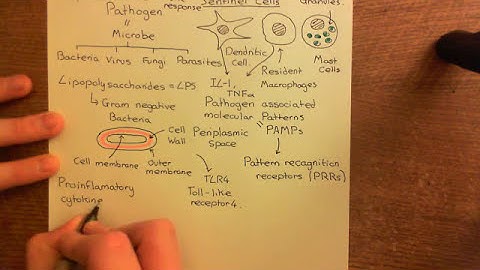 response
Sentinel Cells
Granules.
Pathogen
=
Microbe
Bacteria Virus Fungi Parasites
Dendritic
Cell.
Mast
Cells
Resident
Macrophages
Lipopolysaccharides = LPS
IL-1,
TNFα
↳ Gram negative
Bacteria
Pathogen associated
molecular Patterns
= PAMPs
Cell
Wall
Periplasmic
Space
Cell membrane
Outer
membrane
Pattern recagnition
receptors (PRRs)
TLR4
Toll-like
receptor 4.
Proinflamatory
cytokine